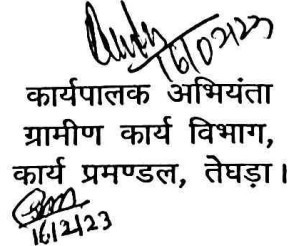 16/02/23
कार्यपालक अभियंता
ग्रामीण कार्य विभाग,
कार्य प्रमण्डल, तेघड़ा।
16/2/23